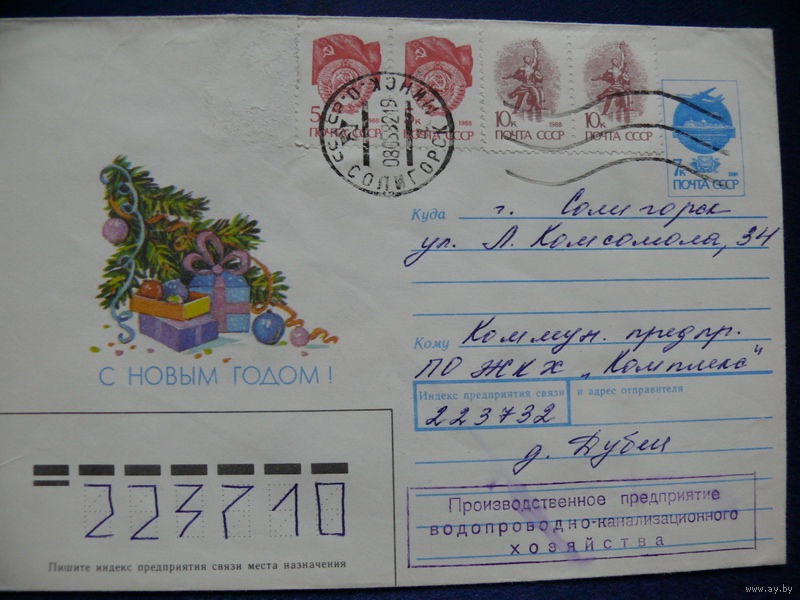 5к 1988
ПОЧТА СССР
к 1988
ПОЧТА СССР
10к 1988
ПОЧТА СССР
10к 1988
ПОЧТА СССР
7к 1991
ПОЧТА СССР
СОЛИГОРСК МИНСК.О.
Куда г. Солигорск
ул. Л. Комсомола, 34
Кому Коммун. предпр.
ПО ЖКХ „Комплекс"
Индекс предприятия связи и адрес отправителя
223732
д. Дубеи
Производственное предприятие
водопроводно-канализационного
хозяйства
С НОВЫМ ГОДОМ!
223710
Пишите индекс предприятия связи места назначения
www.ay.by